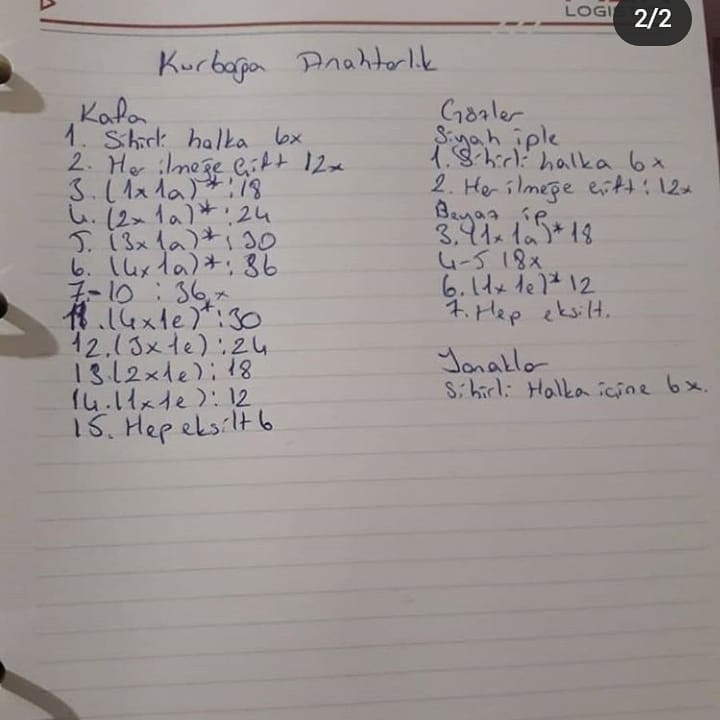 LOGI
2/2
Kurbağa Anahtarlık
Kafa
1. Sihirli halka 6x
2. Her ilmeğe çift 12x
3. (1x 1a)* : 18
4. (2x 1a)* : 24
5. (3x 1a)* : 30
6. (4x 1a)* : 36
7-10 : 36x
11. (4x1e)* : 30
12. (3x 1e) : 24
13. (2x1e) : 18
14. (1x1e) : 12
15. Hep eksilt 6
Gözler
Siyah iple
1. Sihirli halka 6x
2. Her ilmeğe çift : 12x
Beyaz ip
3. (1x 1a)* 18
4-5 18x
6. (1x 1e)* 12
7. Hep eksilt.
Yanaklar
Sihirli Halka içine 6x.